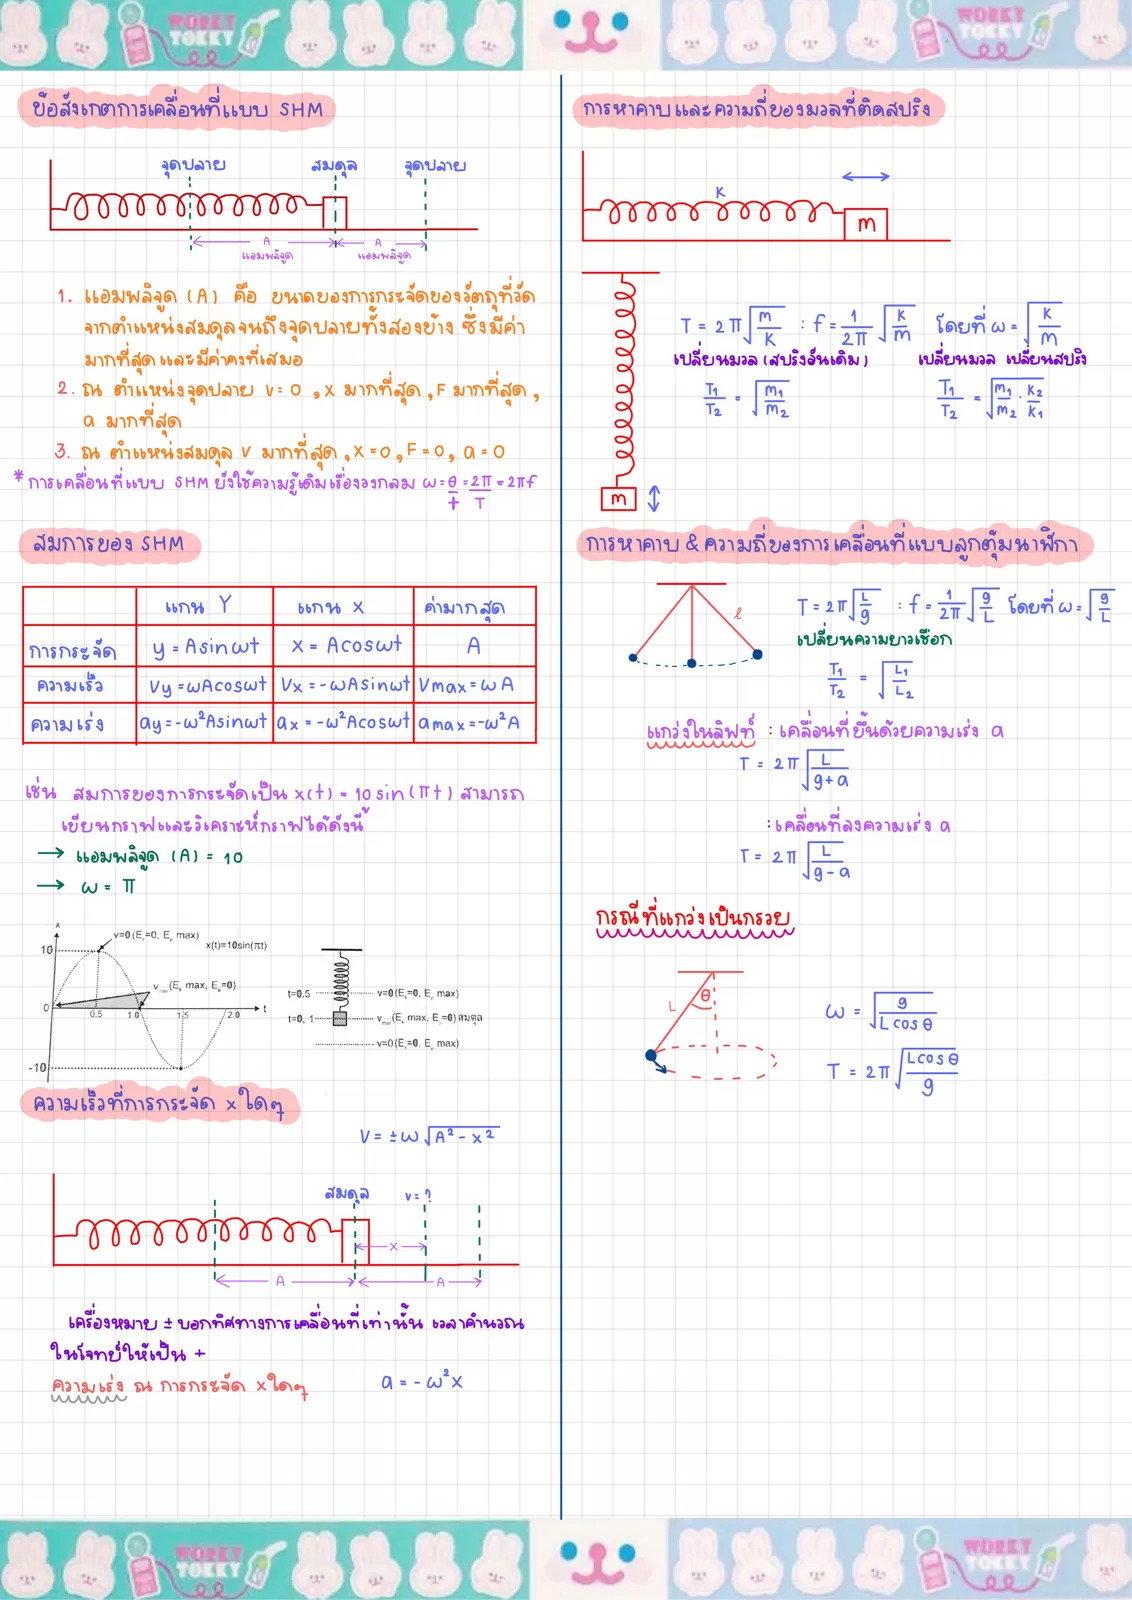 WORKY
TOKKY
WORKY
TOKKY
ข้อสังเกตการเคลื่อนที่แบบ SHM
จุดปลาย สมดุล จุดปลาย
A A
แอมพลิจูด แอมพลิจูด
1. แอมพลิจูด (A) คือ ขนาดของการกระจัดของวัตถุที่วัด
จากตำแหน่งสมดุลจนถึงจุดปลายทั้งสองข้าง ซึ่งมีค่า
มากที่สุดและมีค่าคงที่เสมอ
2. ณ ตำแหน่งจุดปลาย v=0 , x มากที่สุด , F มากที่สุด ,
a มากที่สุด
3. ณ ตำแหน่งสมดุล v มากที่สุด , x=0 , F=0 , a=0
* การเคลื่อนที่แบบ SHM ยังใช้ความรู้เดิมเรื่องวงกลม ω = θ/t = 2π/T = 2πf
สมการของ SHM
แกน Y แกน x ค่ามากสุด
การกระจัด y = Asinωt x = Acosωt A
ความเร็ว Vy = ωAcosωt Vx = -ωAsinωt Vmax = ωA
ความเร่ง ay = -ω²Asinωt ax = -ω²Acosωt amax = -ω²A
เช่น สมการของการกระจัดเป็น x(t) = 10 sin (πt) สามารถ
เขียนกราฟและวิเคราะห์กราฟได้ดังนี้
→ แอมพลิจูด (A) = 10
→ ω = π
x
v=0 (Ek=0, Ep max)
x(t)=10sin(πt)
10
vmax (Ek max, Ep=0)
0 0.5 1.0 1.5 2.0 t
-10
t=0.5 v=0 (Ek=0, Ep max)
t=0, 1 vmax (Ek max, Ep=0) สมดุล
v=0 (Ek=0, Ep max)
ความเร็วที่การกระจัด x ใดๆ
V = ±ω√(A² - x²)
สมดุล v = ?
x
A A
เครื่องหมาย ± บอกทิศทางการเคลื่อนที่เท่านั้น เวลาคำนวณ
ในโจทย์ให้เป็น +
ความเร่ง ณ การกระจัด x ใดๆ a = -ω²x
การหาคาบและความถี่ของมวลที่ติดสปริง
K
m
m
T = 2π√(m/K) : f = 1/2π √(K/m) โดยที่ ω = √(K/m)
เปลี่ยนมวล (สปริงอันเดิม) เปลี่ยนมวล เปลี่ยนสปริง
T₁/T₂ = √(m₁/m₂) T₁/T₂ = √(m₁/m₂ · K₂/K₁)
การหาคาบ & ความถี่ของการเคลื่อนที่แบบลูกตุ้มนาฬิกา
l
T = 2π√(L/g) : f = 1/2π √(g/L) โดยที่ ω = √(g/L)
เปลี่ยนความยาวเชือก
T₁/T₂ = √(L₁/L₂)
แกว่งในลิฟท์ : เคลื่อนที่ขึ้นด้วยความเร่ง a
T = 2π√(L/g+a)
: เคลื่อนที่ลงความเร่ง a
T = 2π√(L/g-a)
กรณีที่แกว่งเป็นกรวย
L θ
ω = √(g/L cos θ)
T = 2π√(Lcosθ/g)
WORKY
TOKKY
WORKY
TOKKY